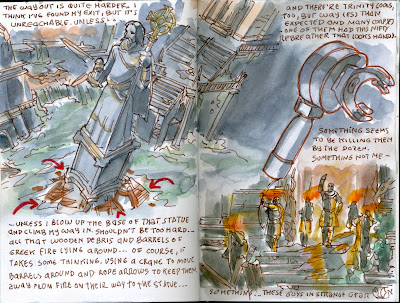 THE WAY OUT IS QUITE HARDER. I
THINK I'VE FOUND MY EXIT, BUT IT'S
UNREACHABLE. UNLESS...
-UNLESS I BLOW UP THE BASE OF THAT STATUE
AND CLIMB MY WAY IN. SHOULDN'T BE TOO HARD...
ALL THAT WOODEN DEBRIS AND BARRELS OF
GREEK FIRE LYING AROUND... OF COURSE, IT
TAKES SOME THINKING, USING A CRANE TO MOVE
BARRELS AROUND AND ROPE ARROWS TO KEEP THEM
AWAY FROM FIRE ON THEIR WAY TO THE STATUE...
AND THERE'RE TRINITY GOONS,
TOO, BUT WAY LESS THAN
EXPECTED AND MANY CORPSES
ONE OF THEM HAD THIS NIFTY
REBREATHER THAT LOOKS HANDY.
SOMETHING SEEMS
TO BE KILLING THEM
BY THE DOZEN.
SOMETHING NOT ME-
SOMETHING... THESE GUYS IN STRANGE GEAR